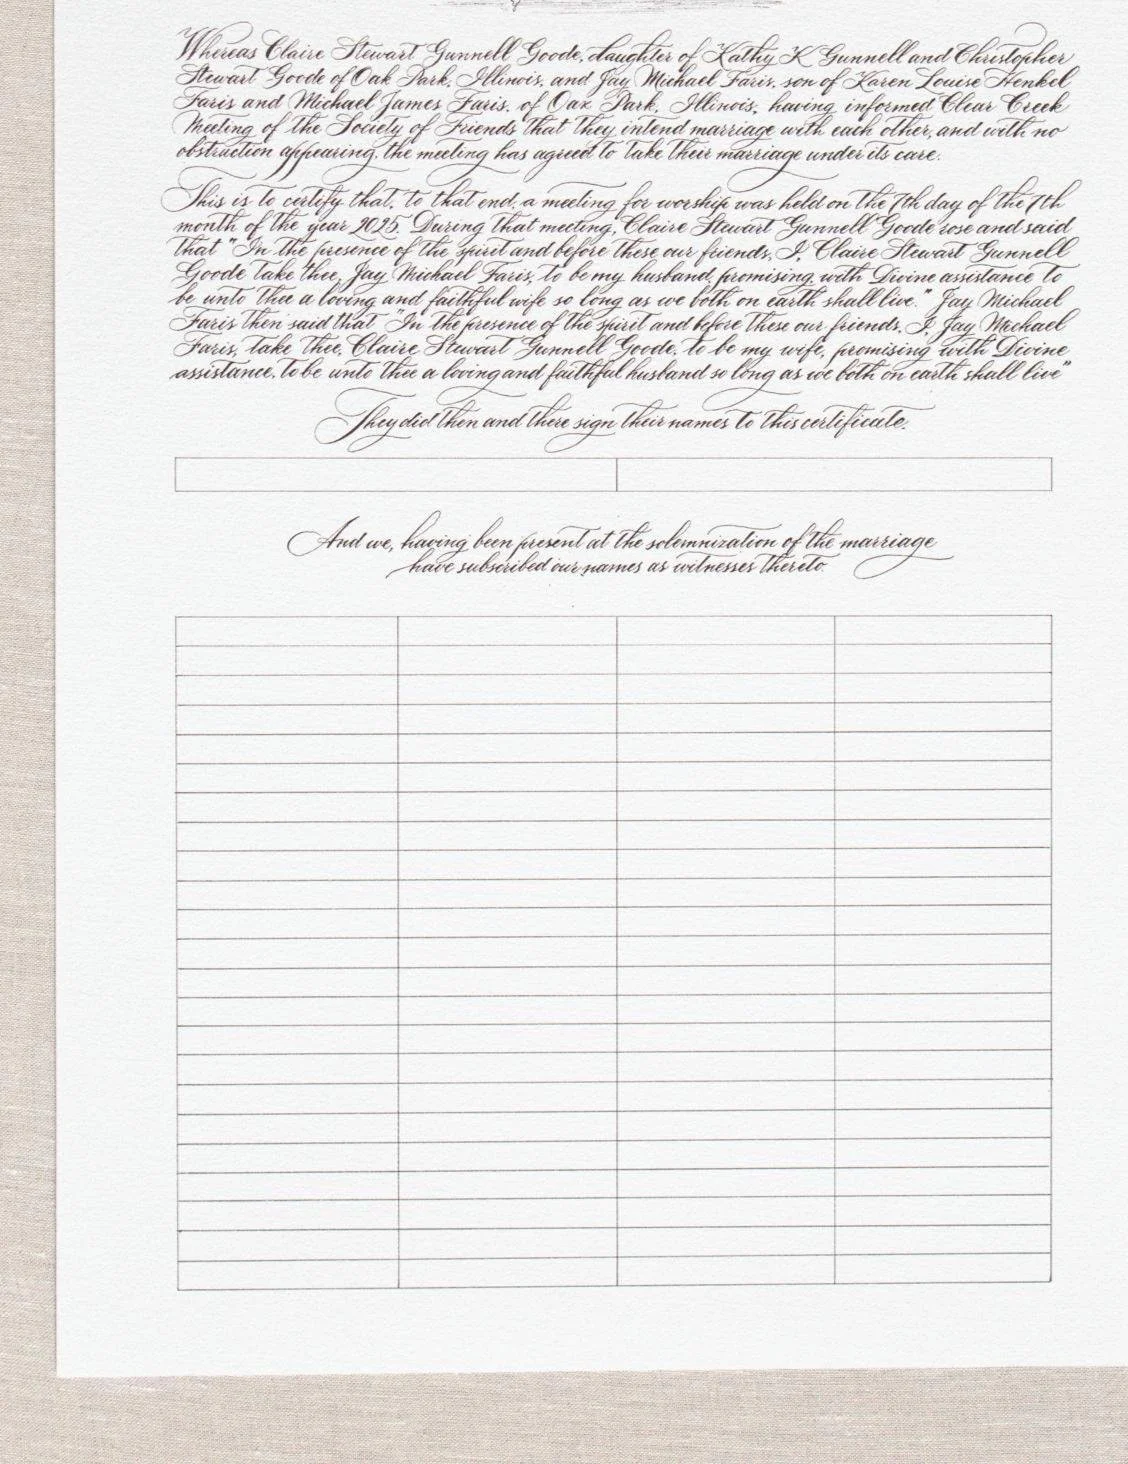 Whereas Claire Stewart Gunnell Goode, daughter of Kathy K Gunnell and Christopher
Stewart Goode of Oak Park, Illinois, and Jay Michael Faris, son of Karen Louise Henkel
Faris and Michael James Faris, of Oak Park, Illinois, having informed Clear Creek
Meeting of the Society of Friends that they intend marriage with each other, and with no
obstruction appearing, the meeting has agreed to take their marriage under its care.
This is to certify that, to that end, a meeting for worship was held on the 7th day of the 7th
month of the year 2025. During that meeting, Claire Stewart Gunnell Goode rose and said
that "In the presence of the spirit and before these our friends, I, Claire Stewart Gunnell
Goode take thee, Jay Michael Faris, to be my husband, promising with Divine assistance to
be unto thee a loving and faithful wife so long as we both on earth shall live." Jay Michael
Faris then said that "In the presence of the spirit and before these our friends, I, Jay Michael
Faris, take thee, Claire Stewart Gunnell Goode, to be my wife, promising with Divine
assistance, to be unto thee a loving and faithful husband so long as we both on earth shall live"
They did then and there sign their names to this certificate.
And we, having been present at the solemnization of the marriage
have subscribed our names as witnesses thereto.